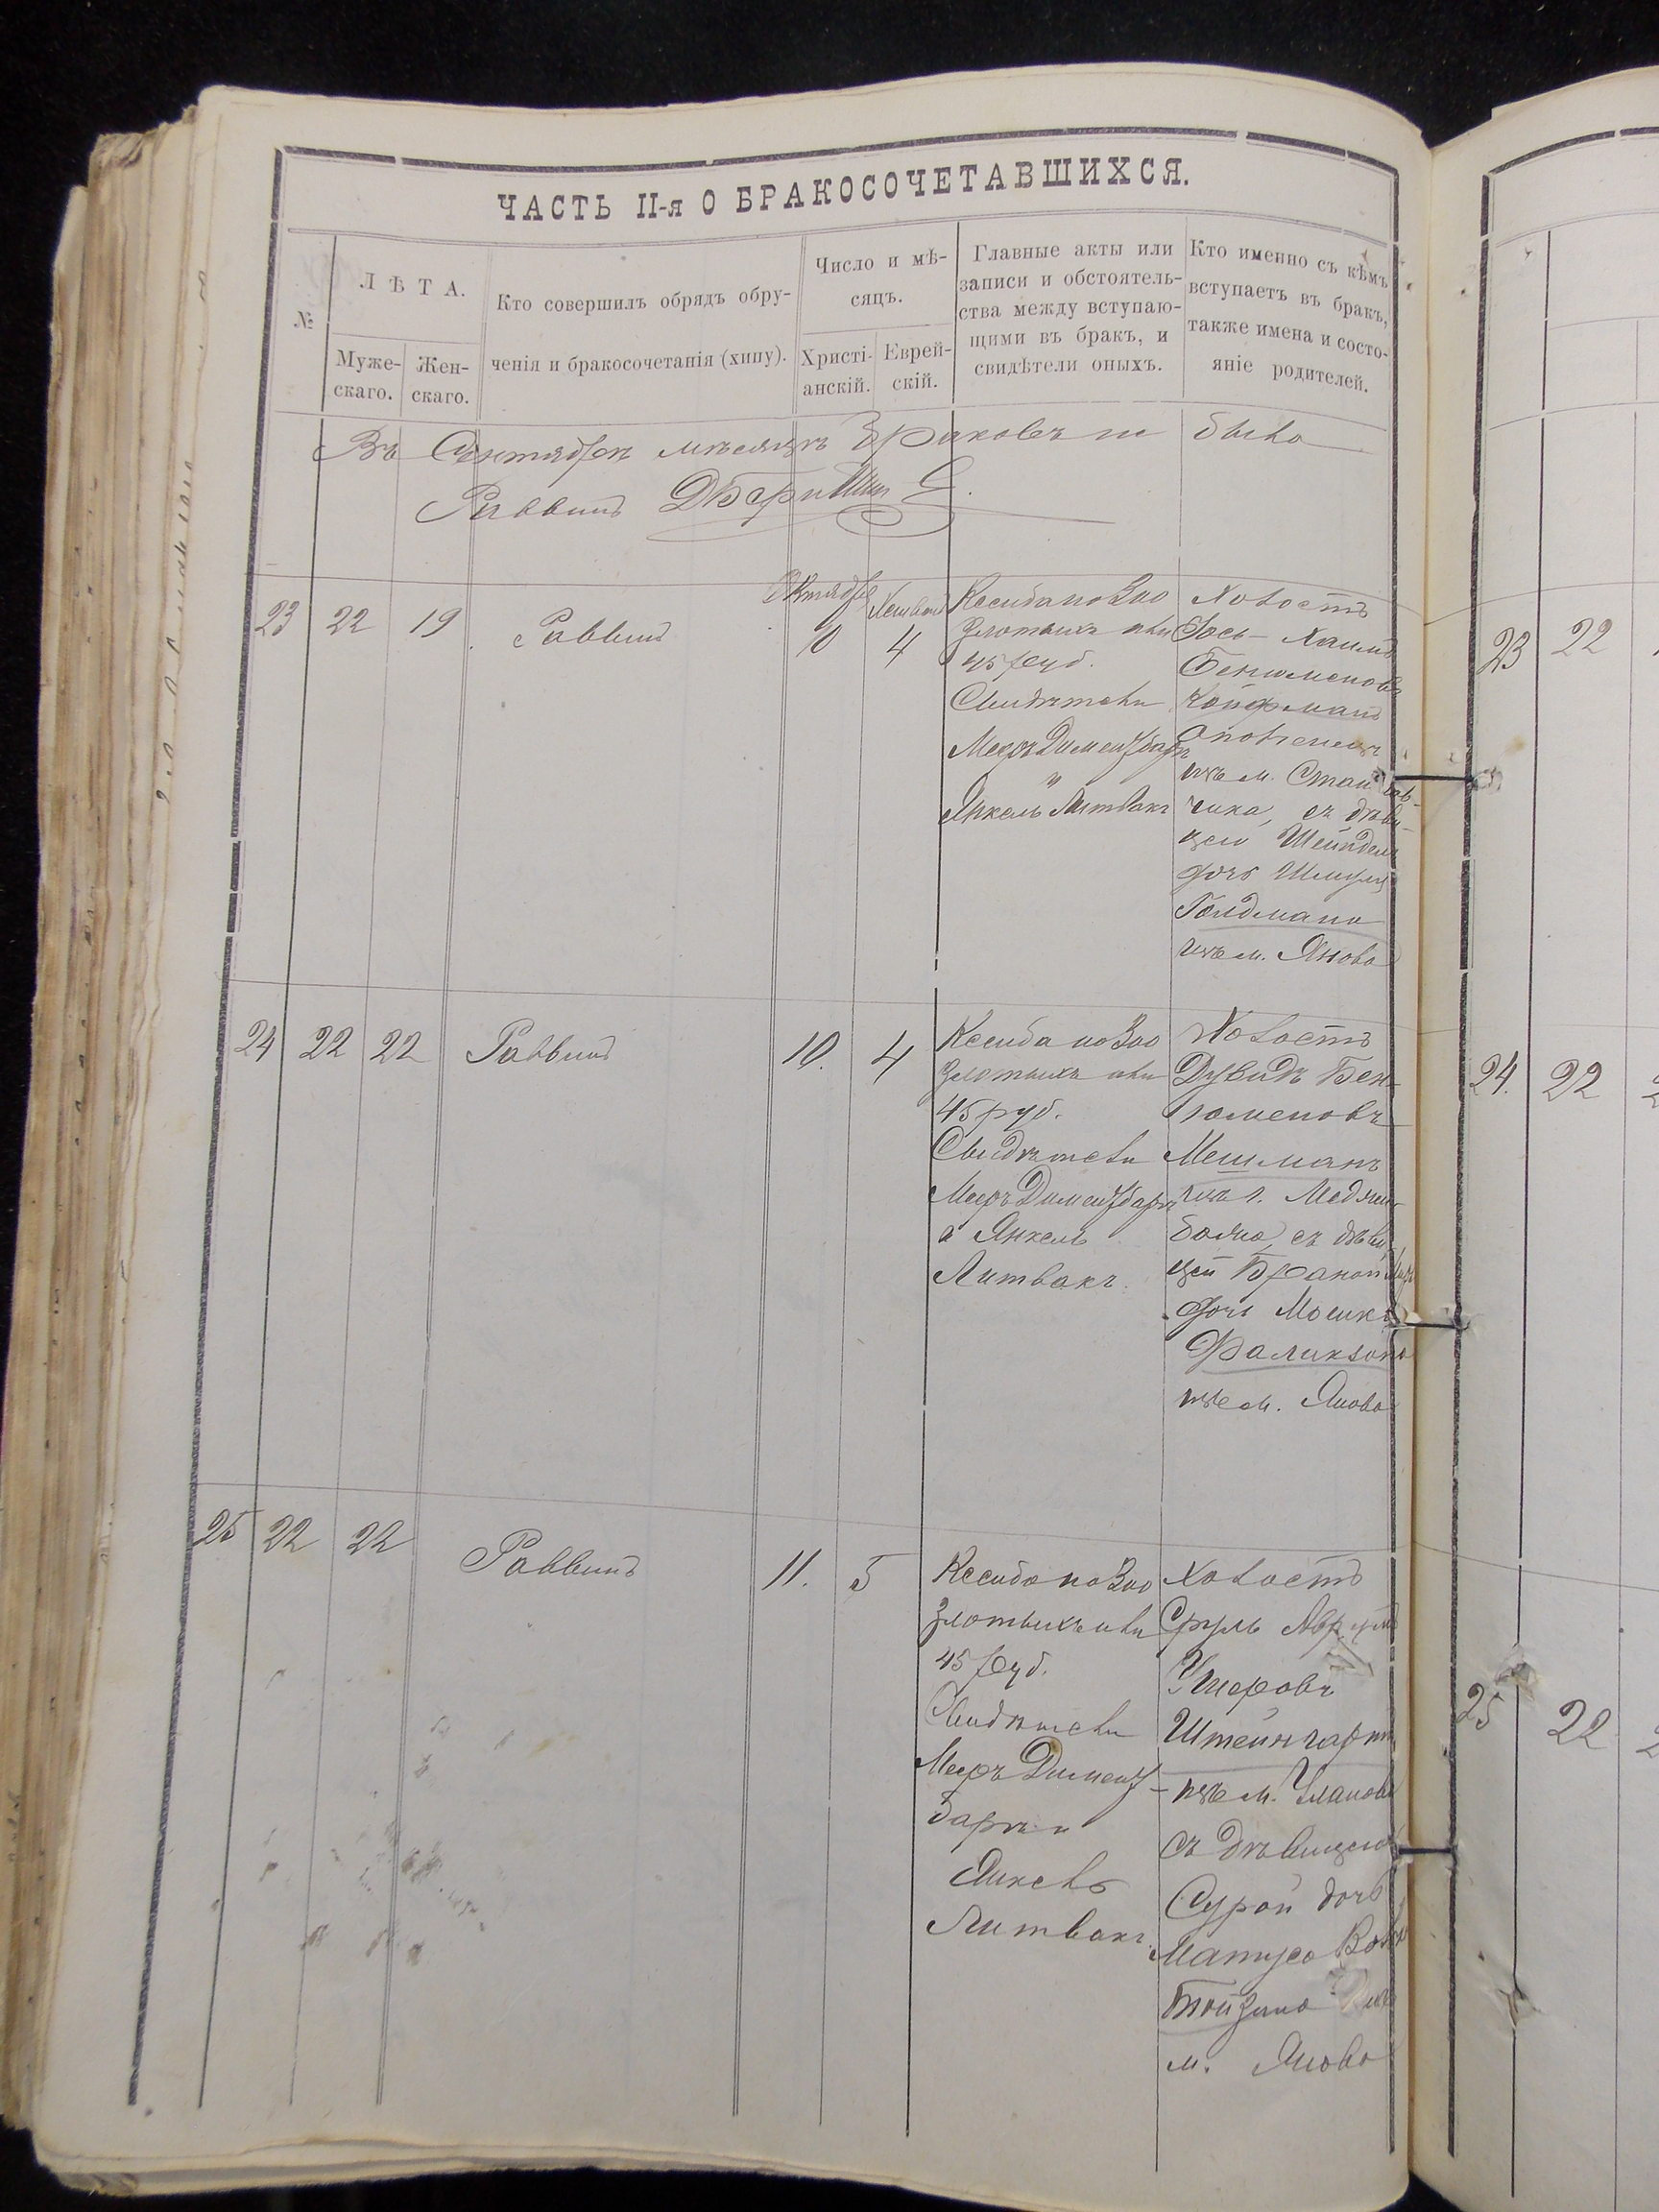 ЧАСТЬ II-я О БРАКОСОЧЕТАВШИХСЯ.
№
ЛѢТА.
Муже-
скаго.
Жен-
скаго.
Кто совершилъ обрядъ обру-
ченія и бракосочетанія (хипу).
Число и мѣ-
сяцъ.
Христі-
анскій.
Еврей-
скій.
Главные акты или
записи и обстоятель-
ства между вступаю-
щими въ бракъ, и
свидѣтели оныхъ.
Кто именно съ кѣмъ
вступаетъ въ бракъ,
также имена и состо-
яніе родителей.
Въ Сентябрѣ мѣсяцѣ браковъ не было
Раввинъ
23
22
19
Раввинъ
Октября
10
4
Ксиба по
злотыхъ или
45 руб.
Свидѣтели
Мееръ
Янкель Литвакъ
Холостъ
Хаимъ
изъ м.
чика, съ дѣви-
цею Шейндел
дочь Шмуля
Голдмана
изъ м. Янова
24
22
22
Раввинъ
10.
4
Ксиба по
злотыхъ или
45 руб.
Свидѣтели
Мееръ
и Янкель
Литвакъ.
Холостъ
Дувидъ Бен-
юменовъ
Мешманъ
изъ г. Меджи-
божа, съ дѣви-
цей
дочь Мошка
Фаликзона
изъ м. Янова
25
22
22
Раввинъ
11.
5
Ксиба по
злотыхъ или
45 руб.
Свидѣтели
Мееръ Дименд-
баръ и
Янкель
Литвакъ.
Холостъ
Сруль
Ушеровъ
Штейнгартъ
изъ м. Уланова
съ дѣвицею
Сурой дочь
Матуса
м. Янова
23
22
24.
22
25
22